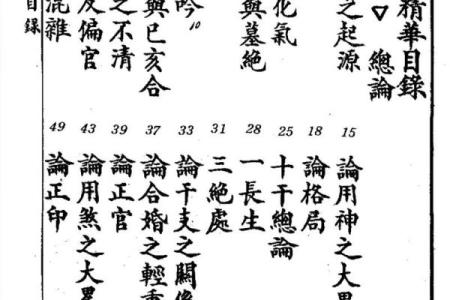 精華目錄
▽ 總論
之起源
化氣
與墓絕
吟 10
與已亥合
之不清
及偏官
混雜
15 論用神之大
18 論格局
25 十干總論
28 一長生
31 三絕處
33 論干支之關係
37 論合婚之輕重
39 論正官
43 論用煞之大畧
49 論正印
目錄